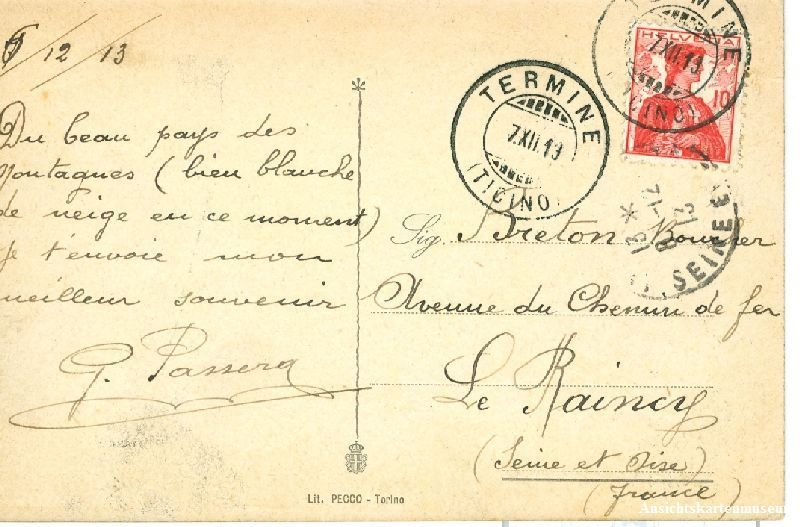 /12/13
Du beau pays des
Montagnes (bien blanche
de neige en ce moment)
je t'envoie mon
meilleur souvenir
G. Passera
TERMINE
7.XII.13
(TICINO)
TERMINE
7.XII.13
(TICINO)
HELVETIA
10
13 *
SEINE
Sig. Breton
Avenue du Chemin de fer
Le Raincy
(Seine et Oise)
(France)
Lit. PECCO - Torino
Ansichtskartenmuseum